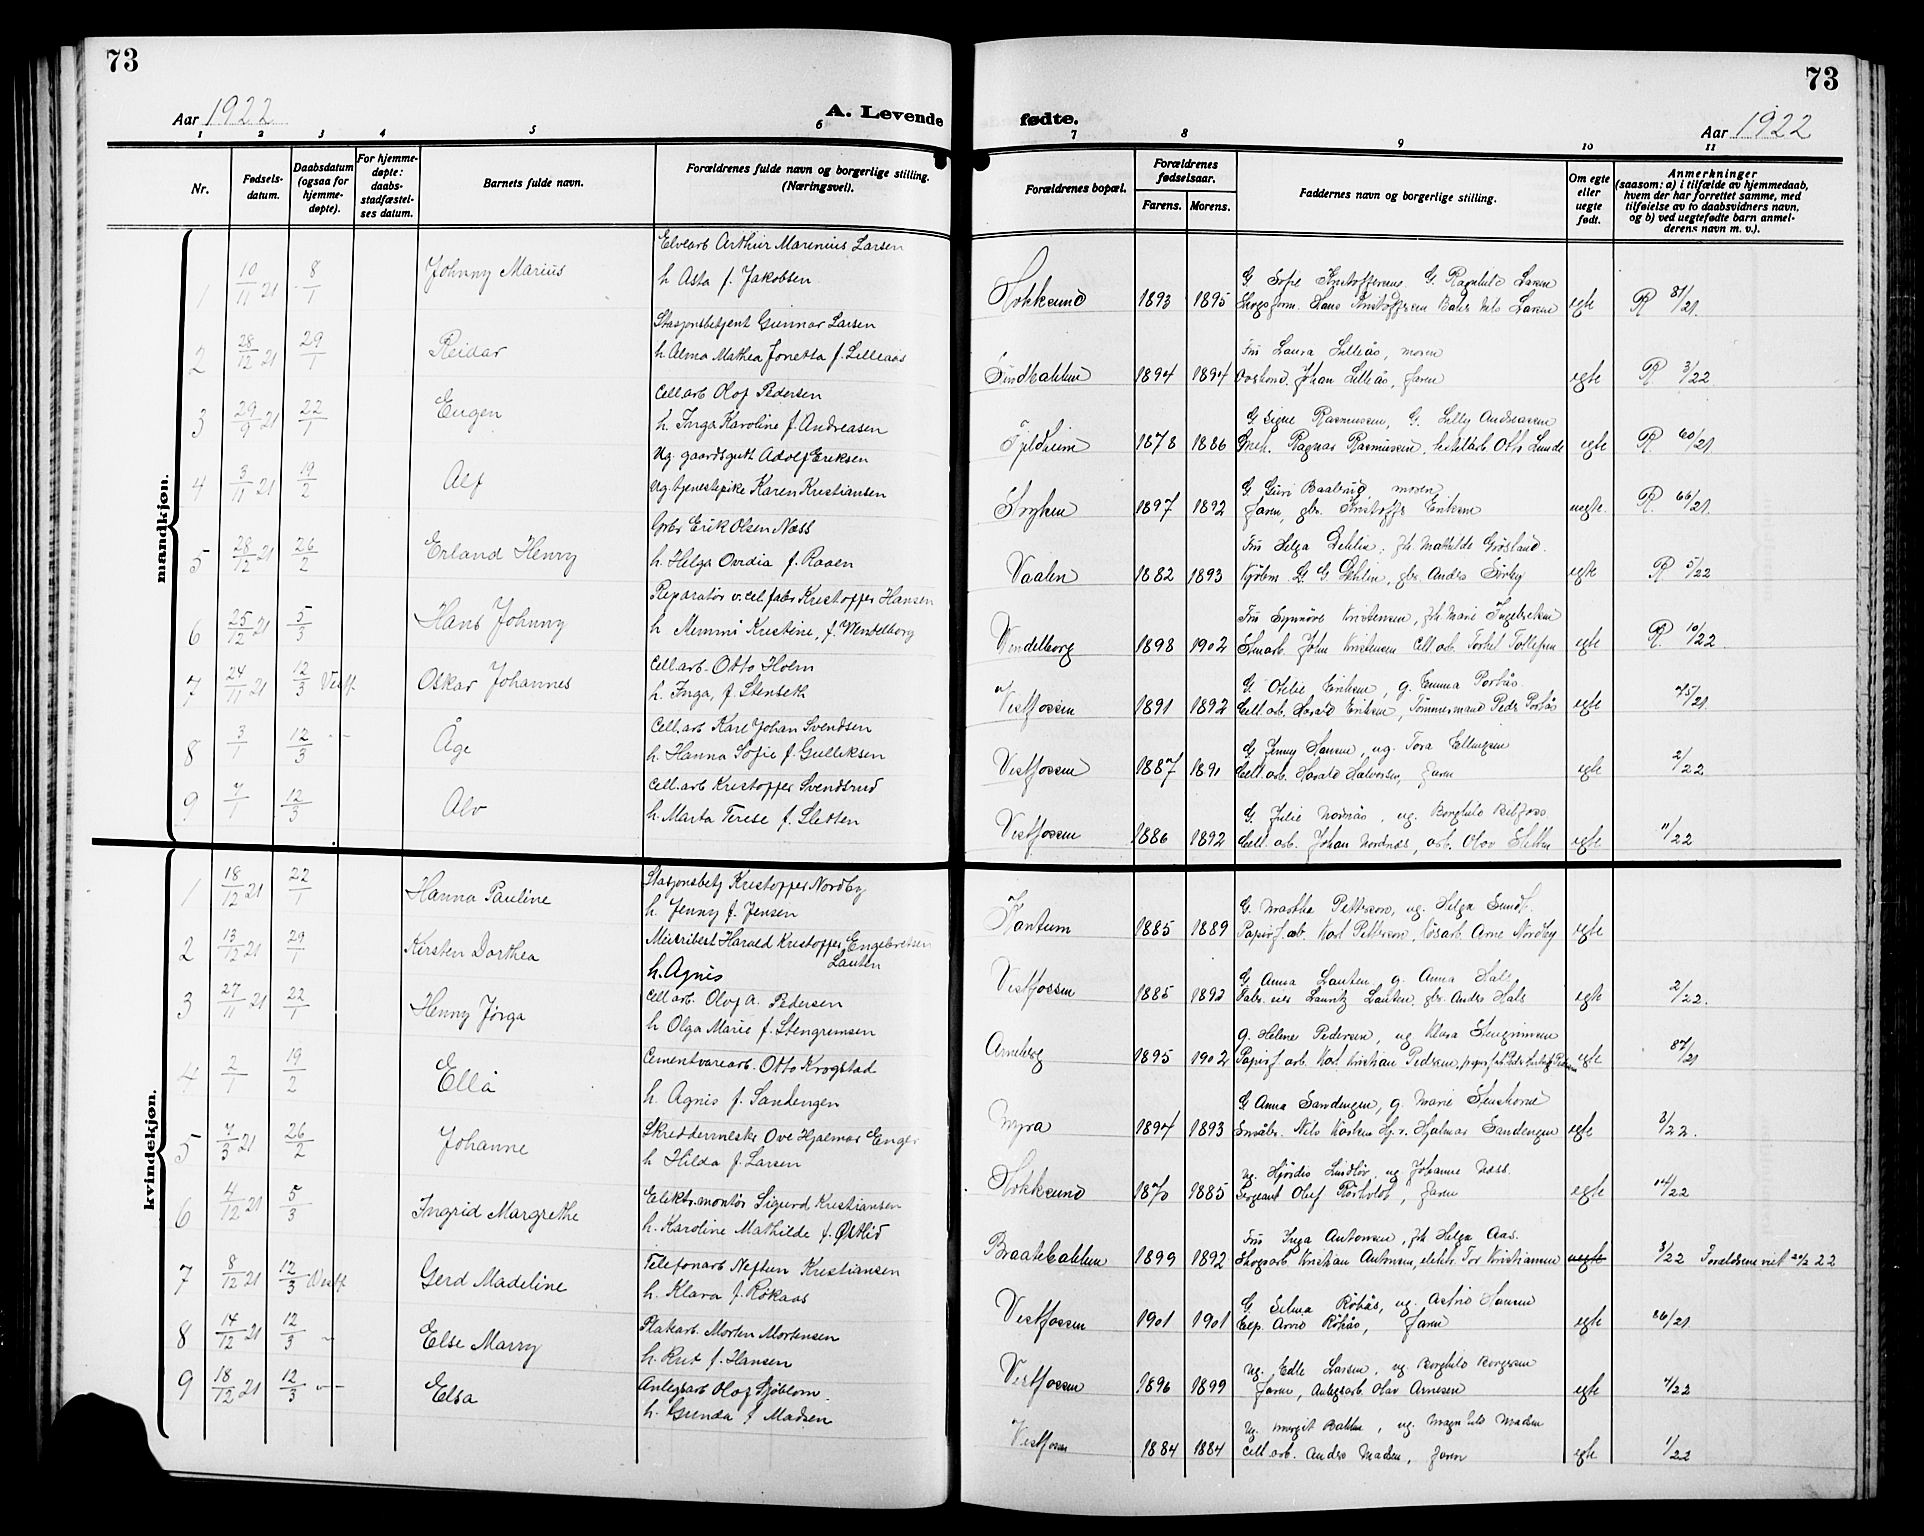 73
Aar 1922
A. Levende
1 2 3 4 5 6
Nr.
Fødsels-
datum.
Daabsdatum
(ogsaa for
hjemme-
døpte).
For hjemme-
døpte:
daabs-
stadfæstel-
ses datum.
Barnets fulde navn.
Forældrenes fulde navn og borgerlige stilling.
(Næringsvei).
mandkjøn.
1 10/11 21 8/1 Johnny Marius
Elvearb Arthur Marenius Larsen
h. Asta f. Jakobsen
2 28/12 21 29/1 Reidar
Stasjonsbetjent Gunnar Larsen
h. Alma Mathea Jonetta f. Lilleaas
3 29/9 21 22/1 Eugen
Cell.arb Olof Pedersen
h. Inga Karoline f. Andreasen
4 3/11 21 19/2 Alf
Ug. gaardsgutt Adolf Eriksen
ug. tjenestepike Karen Kristiansen
5 28/12 21 26/2 Erland Henry
Gbr Erik Olsen Næss
h. Helga Ovidia f. Raaen
6 25/12 21 5/3 Hans Johnny
Reparatør v. cel.fabr Kristoffer Hansen
h. Memmi Kristine, f. Wendelborg
7 24/11 21 12/3 Vestf. Oskar Johannes
Cell.arb. Otto Holm
h. Inga, f. Stenseth
8 3/1 12/3 Åge
Cell.arb Karl Johan Svendsen
h. Hanna Sofie f. Gulliksen
9 7/1 12/3 Alv
Cell.arb Kristoffer Svendsrud
h. Marta Terese f. Sletten
kvindekjøn.
1 18/12 21 22/1 Hanna Pauline
Stasjonsbetj Kristoffer Nordby
h. Jenny f. Jensen
2 13/12 21 29/1 Kirsten Dorthea
Meieribest Harald Kristoffer Engebretsen
Lauten
h. Agnis
3 27/11 21 22/1 Henny Jørga
Cell arb. Olof A. Pedersen
h Olga Marie f. Stengrimsen
4 2/1 19/2 Ella
Cementvarearb. Otto Krogstad
h. Agnis f. Sandengen
5 7/3 21 26/2 Johanne
Skreddermester Ove Hjalmar Enger
h Hilda f. Larsen
6 4/12 21 5/3 Ingrid Margrethe
Elektr.montør Sigurd Kristiansen
h. Karoline Mathilde f. Østlid
7 8/12 21 12/3 Vestf Gerd Madeline
Telefonarb Neften Kristiansen
h. Klara f. Røkaas
8 14/12 21 12/3 Else Marry
Platarb. Morten Mortensen
h. Rut f. Hansen
9 18/12 21 12/3 Elsa
Anlegsarb Olof Sjøblom
h. Gunda f Madsen
73
fødte.
Aar 1922
7 8 9 10 11
Forældrenes bopæl.
Forældrenes
fødselsaar.
Farens. Morens.
Faddernes navn og borgerlige stilling.
Om egte
eller
uegte
født.
Anmerkninger
(saasom: a) i tilfælde av hjemmedaab,
hvem der har forrettet samme, med
tilføielse av to daabsvidners navn,
og b) ved uegtefødte barn anmel-
derens navn m. v.).
G Sofie Kristoffersens G. Ragnhild Larsen
Hokksund 1893 1895 Skogsform. Hans Kristoffersen Nils Larsen egte R 81/21.
Fru Laura Lilleås, moren
Lindbakken 1894 1894 Johan Lilleås, faren egte R 3/22
G Signe Rasmussen, G. Lilly Andreassen
Fjeldheim 1878 1886 Ragnar Rasmussen, Otto Lunde egte R. 60/21
G. Guri Baalsrud, moren
Stryken 1897 1892 faren, gbr. Kristoffer Eriksen uegte. R. 66/21.
Fru Helga Dehlin, frk. Mathilde Grøsland.
Vaalen 1882 1893 Kjøbm. G Dehlin, gbr. Anders Sørby egte R 5/22
Fru Synnøve Kristensen, frk Marie Ingebretsen
Wendelborg 1898 1902 John Kristensen Cell.arb. Torkel Tollefsen egte R. 10/22.
G. Otelie Eriksen, g. Emma Porbås
Vestfossen 1891 1892 Cell.arb. Harald Eriksen, Tømmermand Peder Porbås egte 75/21
G Jenny Hansen, ug. Tora Ellingsen
Vestfossen 1887 1891 Cell.arb. Harald Halvorsen, faren egte 2/22
G. Julie Nordnæs, ug. Borghild Bilfoss
Vestfossen 1886 1892 Cell. arb. Johan Nordnæs, arb. Olav Sletten egte 11/22
G. Martha Petterson, ug. Helga Sundt.
Hontum 1885 1889 Papirf.arb. Karl Petterson, Arne Nordby egte
G Anna Lauten g. Anna Hals
Vestfossen 1885 1892 Fabr.eier Lauritz Lauten, gbr. Anders Hals egte 2/22.
g. Helene Pedersen, ug Klara Stengrimsen
Arneberg 1895 1902 Papirf. arb Karl Kristian Pedersen, egte 87/21
G Anna Sandengen, g. Marie Stenshorne
Myra 1894 1893 Småbr. Nils Hjalmar Sandengen egte 8/22.
ug. Hjørdis Lindløv, ug Johanne Næss.
Hokksund 1870 1885 Sergeant Olaf, faren egte 14/22
Fru Inga Antonsen, frk Helga Aas.
Braatebakken 1899 1892 Skogsarb Kristian Antonsen, elektr. Tor Kristiansen uegte 9/22 Foreldrene viet 22
G. Selma Røkås, ug. Astrid Hansen
Vestfossen 1901 1901 Exp. Arvid Røkås, faren egte 86/21
ug. Edle Larsen, ug. Borghild Borgersen
Vestfossen 1896 1899 faren, Anlegsarb. Olav Arnesen egte 7/22
ug. Margit Bakken, ug. Magnhild Madsen
Vestfossen 1884 1884 Cell arb. Anders Madsen, faren egte 1/22